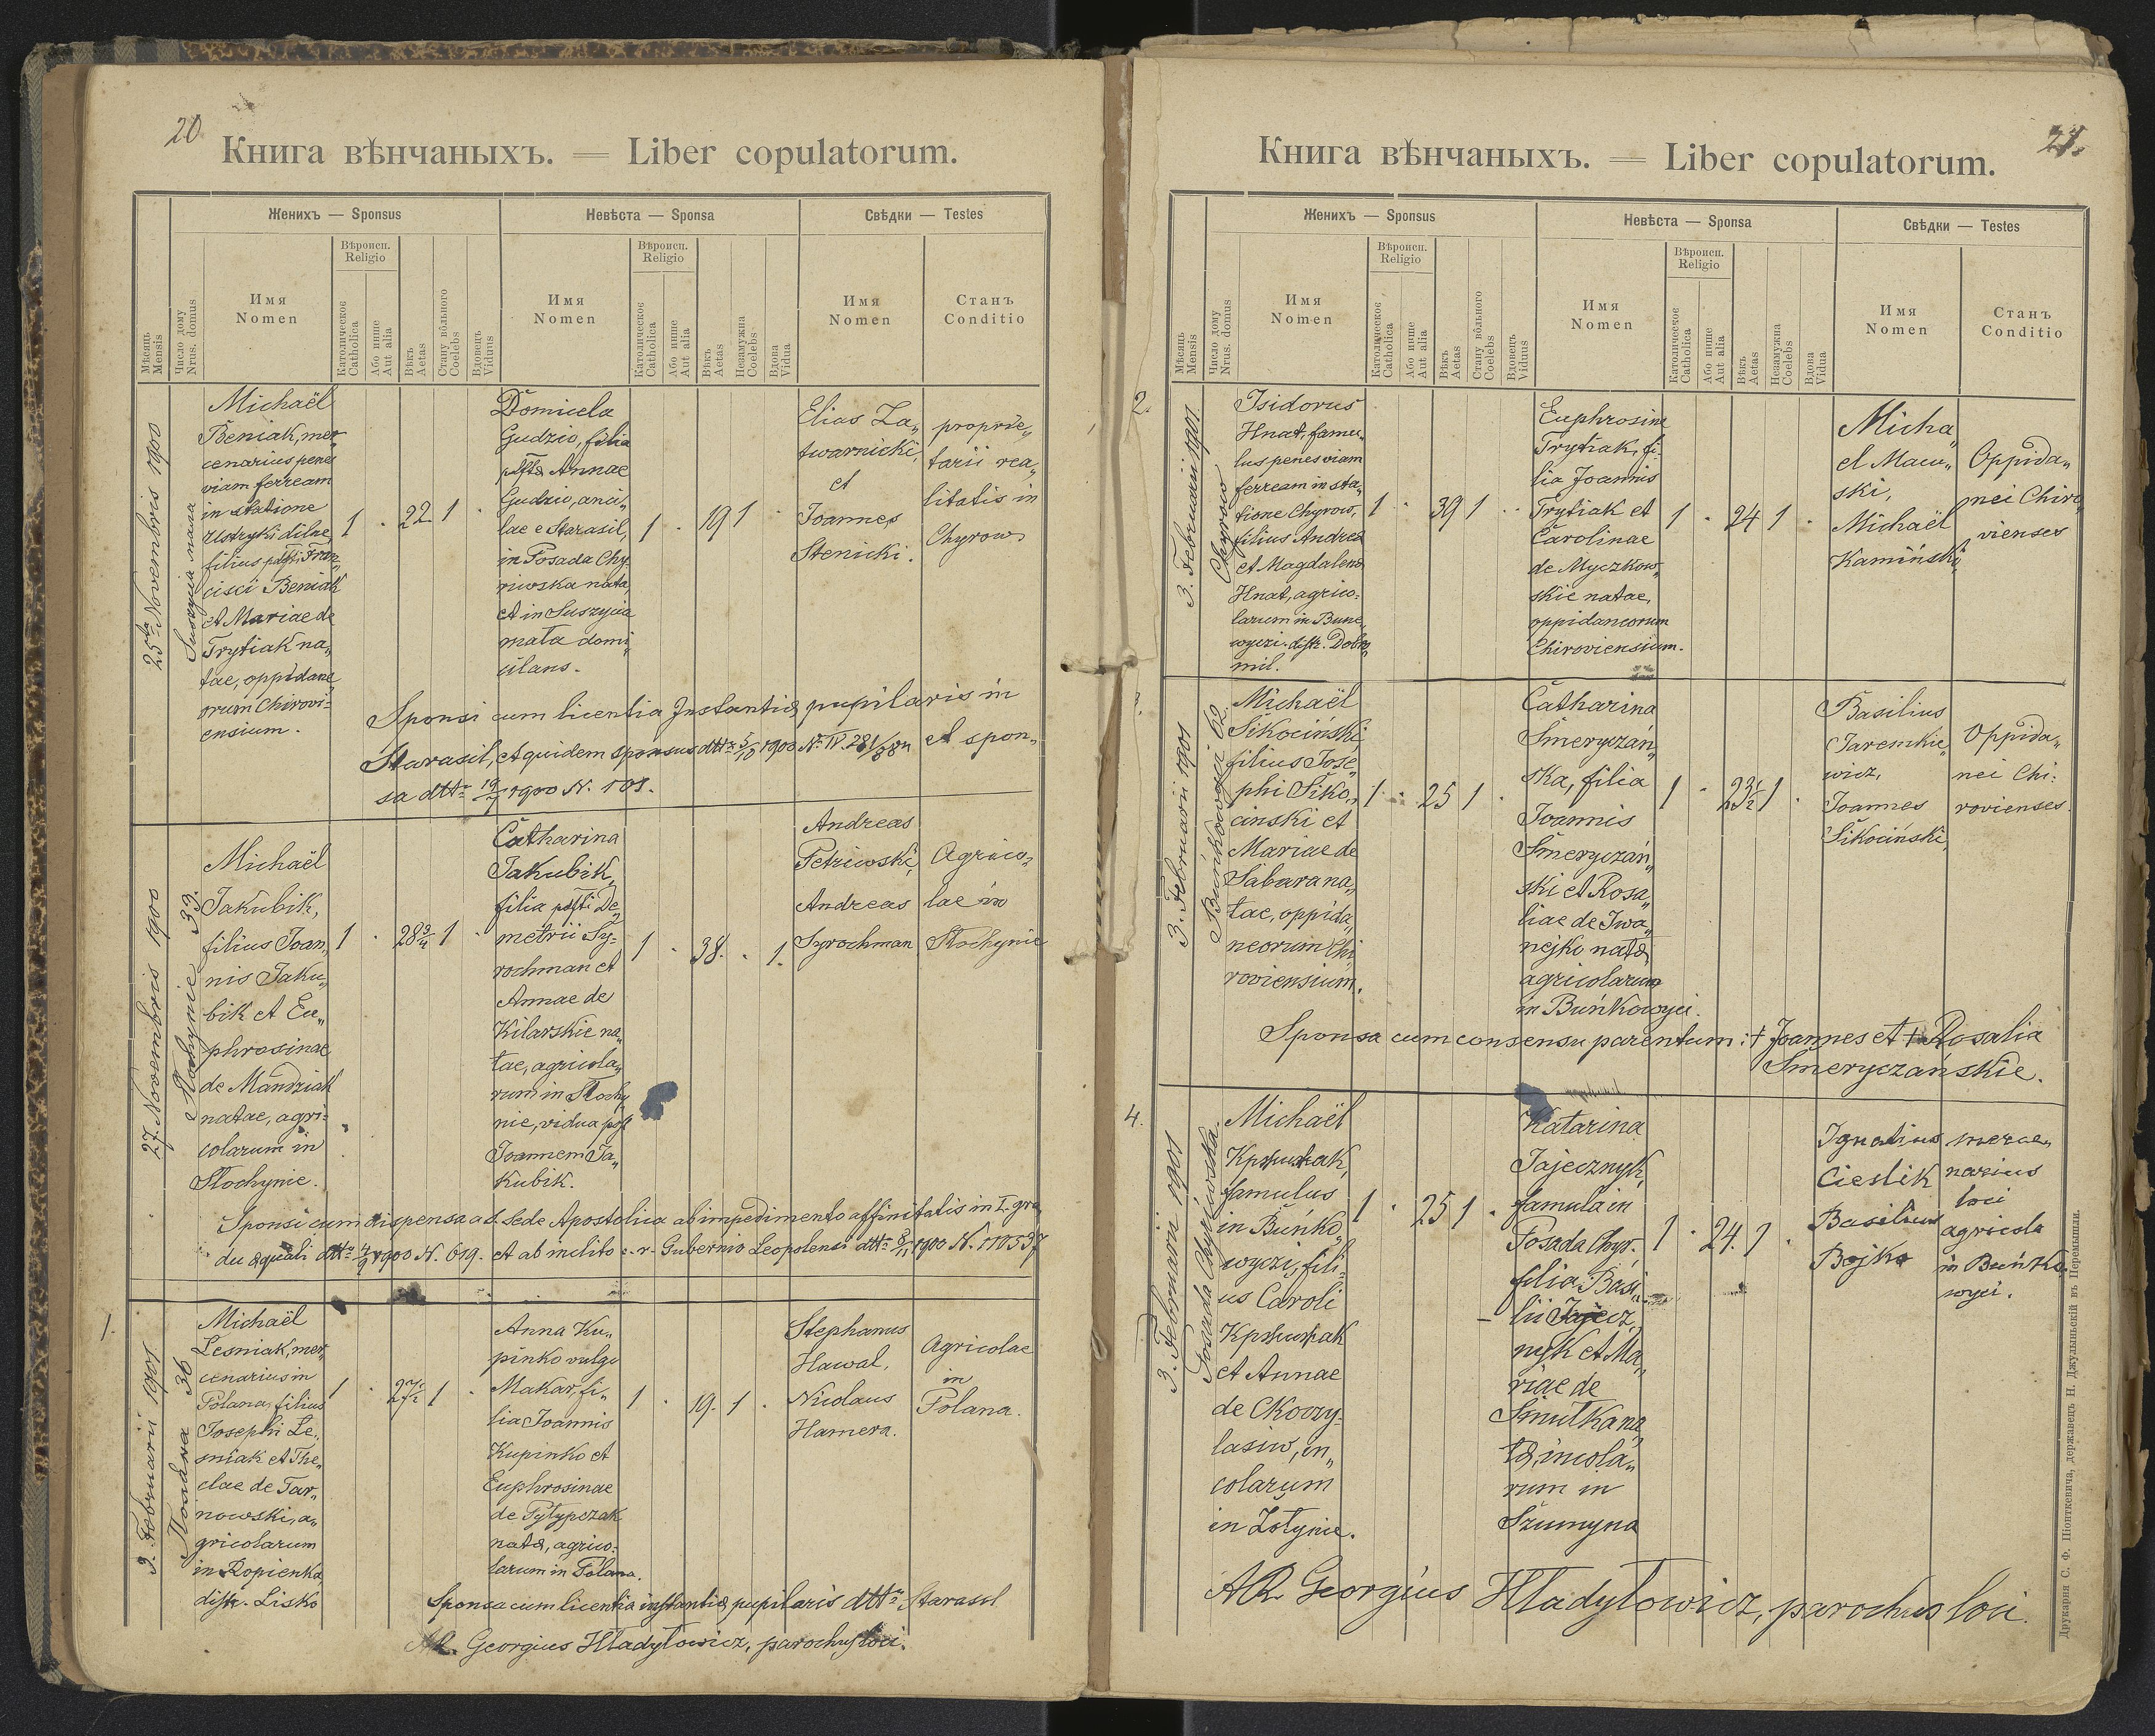 20
Книга вѣнчаныхъ. — Liber copulatorum.
Мѣсяць
Mensis
Число дому
Nrus. domus
Женихъ — Sponsus
Имя
Nomen
Вѣроисп.
Religio
Католическое
Catholica
Або инше
Aut alia
Вѣкъ
Aetas
Стану вôльного
Coelebs
Вдовецъ
Viduus
Невѣста — Sponsa
Имя
Nomen
Вѣроисп.
Religio
Католическое
Catholica
Або инше
Aut alia
Вѣкъ
Aetas
Незамужна
Coelebs
Вдова
Vidua
Свѣдки — Testes
Имя
Nomen
Станъ
Conditio
25ta Novembris 1900
Suszyca mała
Michaël
Beniak, mer„
cenarius penes
viam ferream
in statione
Ustryki dilne,
filius pdfti Fran„
cisci Beniak
et Mariae de
Trytiak na„
tae, oppidane„
orum Chirovi=
ensium.
1 . 22 1 .
Domicela
Gudzio, filia
pdftae Annae
Gudzio, ancil„
lae e Starasil,
in Posada Chy„
riwska nata,
et in Suszycia
mała domi„
cilans.
1 . 19 1 .
Elias Za„
twarnicki,
et
Joannes
Stenicki.
proprie„
tarii rea„
litatis in
Chyrow
Sponsi cum licentia Instantiae pupilaris in
Starasil, et quidem sponsus dtto 5/10 1900 № IV. 281/88 et spon„
sa dtto 19/7 1900 N. 101.
27. Novembris 1900
Słochynie 33.
Michaël
Jakubik,
filius Joan„
nis Jaku„
bik et Eu„
phrosinae
de Mandziak
natae, agri=
colarum in
Słochynie.
1 . 28 3/4 1 .
Catharina
Jakubik,
filia pdfti De„
metrii Sy=
rochman et
Annae de
Kilarskie na„
tae, agricola„
rum in Słochy„
nie, vidua post
Joannem Ja„
kubik.
1 . 38. . 1.
Andreas
Petriwski,
Andreas
Syrochman
Agrico„
lae in
Słochynie
Sponsi cum dispensa a S. Sede Apostolica ab impedimento affinitatis in I. gra„
du aequali dtto 4/9 1900 N. 619. et ab inclito c. r. Gubernio Leopolensi dtto 8/11 1900 N. 110537
1.
3. Februarii 1901
Polana 36
Michaël
Lesniak, mer„
cenarius in
Polana, filius
Josephi Le„
sniak et The„
clae de Tar„
nowski, a„
gricolarum
in Ropienka
distr. Lisko
1 . 27 1/2 1 .
Anna Ku„
pinko vulgo
Makar, fi„
lia Joannis
Kupinko et
Euphrosinae
de Pytypczak
natae, agrico=
larum in Polana.
1 . 19. 1 .
Stephanus
Hawal,
Nicolaus
Hamera.
Agricolae
in
Polana.
Sponsa cum licentia instantiae pupilaris dtto Starasol
AR. Georgius Hładyłowicz, parochus loci.
21.
Книга вѣнчаныхъ. — Liber copulatorum.
Мѣсяць
Mensis
Число дому
Nrus. domus
Женихъ — Sponsus
Имя
Nomen
Вѣроисп.
Religio
Католическое
Catholica
Або инше
Aut alia
Вѣкъ
Aetas
Стану вôльного
Coelebs
Вдовецъ
Viduus
Невѣста — Sponsa
Имя
Nomen
Вѣроисп.
Religio
Католическое
Catholica
Або инше
Aut alia
Вѣкъ
Aetas
Незамужна
Coelebs
Вдова
Vidua
Свѣдки — Testes
Имя
Nomen
Станъ
Conditio
2.
3. Februarii 1901
Chyrow
Isidorus
Hnat, famu„
lus penes viam
ferream in sta„
tione Chyrow,
filius Andrea
et Magdalena
Hnat, agrico=
larum in Bune„
wyczi. distr. Dobro„
mil.
1 . 39 1 . .
Euphrosine
Trytiak, fi„
lia Joannis
Trytiak et
Carolinae
de Myczkow„
skie natae,
oppidaneorum
Chiroviensium.
1 . 24 1 .
Micha„
el Macu„
ski,
Michaël
Kamiński,
Oppida„
nei Chiro„
vienses
3.
3. Februarii 1901
Buńkowyci 62.
Michaël
Sikociński,
filius Jose„
phi Siko„
cinski et
Mariae de
Sabara na„
tae, oppida„
neorum Chi„
roviensium.
1 . 25 1 .
Catharina
Smeryczań„
ska, filia
Joannis
Smeryczań„
ski et Rosa„
liae de Iwa„
nejko natae,
agricolarum
in Buńkowyci.
1 . 23 1/2 1 .
Basilius
Jaremkie„
wicz,
Joannes
Sikociński,
Oppida„
nei Chi=
rovienses
Sponsa cum consensu parentum: + Joannes et + Rosalia
Smeryczańskie.
4.
3. Februarii 1901
Posada Chyriwska
Michaël
famulus
in Buńko„
wyczi, fili=
us Caroli
et Annae
de Skoczy=
lasiw, in„
colarum
in Zołynie.
1 . 25 1 .
Katarina
Jajecznyk,
famula in
Posada Chyr.
filia Basi„
lii Jajecz„
nyk et Ma„
riae de
Smutka na„
tae, incola„
rum in
Szumyna
1 . 24. 1 .
Ignatius
Cieslik
Basilius
Bojko
merce„
narius
loci
agricola
in Buńko„
wyci.
AR Georgius Hładyłowicz, parochus loci.
Друкарня С. Ф. Піонткевича, державецъ Н. Джулыньскій въ Перемышли.